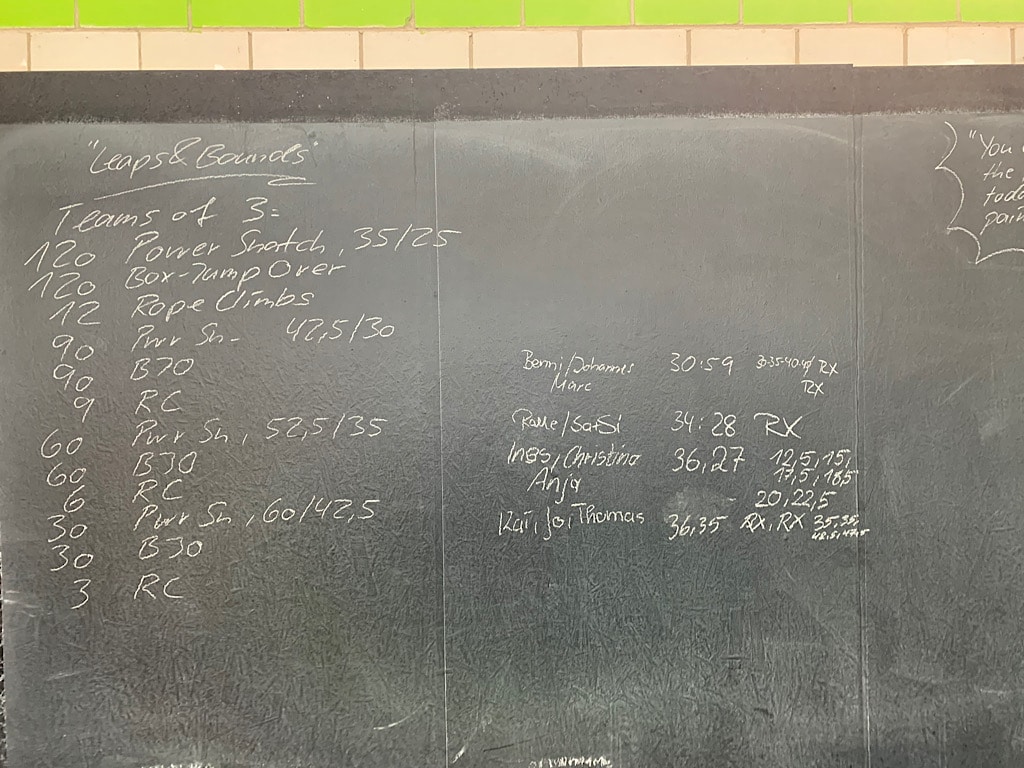 "Leaps & Bounds"
Teams of 3:
120 Power Snatch, 35/25
120 Box-Jump Over
12 Rope Climbs
90 Pwr Sn. 42,5/30
90 BJO
9 RC
60 Pwr Sn, 52,5/35
60 BJO
6 RC
30 Pwr Sn, 60/42,5
30 BJO
3 RC
Benni/Johannes 30:59 RX
Marc RX
/SaSi 34:28 RX
Ines, Christina 36,27 12,5, 15,
Anja 17,5, 18,5
20, 22,5
Kai, Jo, Thomas 36,35 RX, RX 35,35,
"You
the
toda
pain